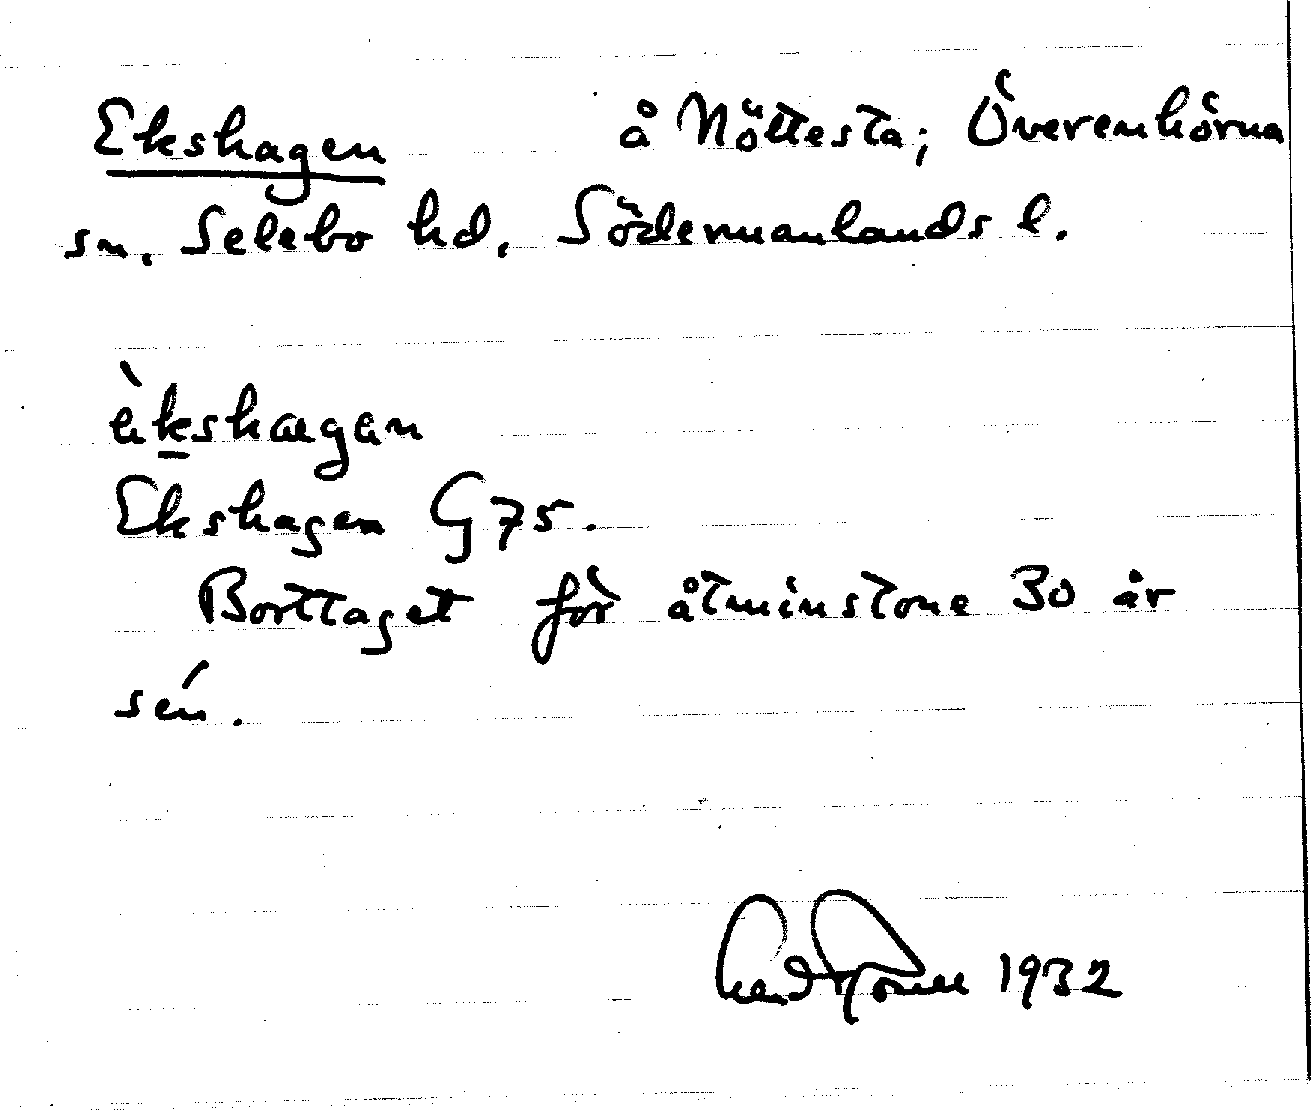 Ekshagen å Nöttesta; Överenhörna
sn. Selebo hd. Södermanlands l.
è̀kshagan
Ekshagen G 75.
Borttaget för åtminstone 30 år
sén.
1932